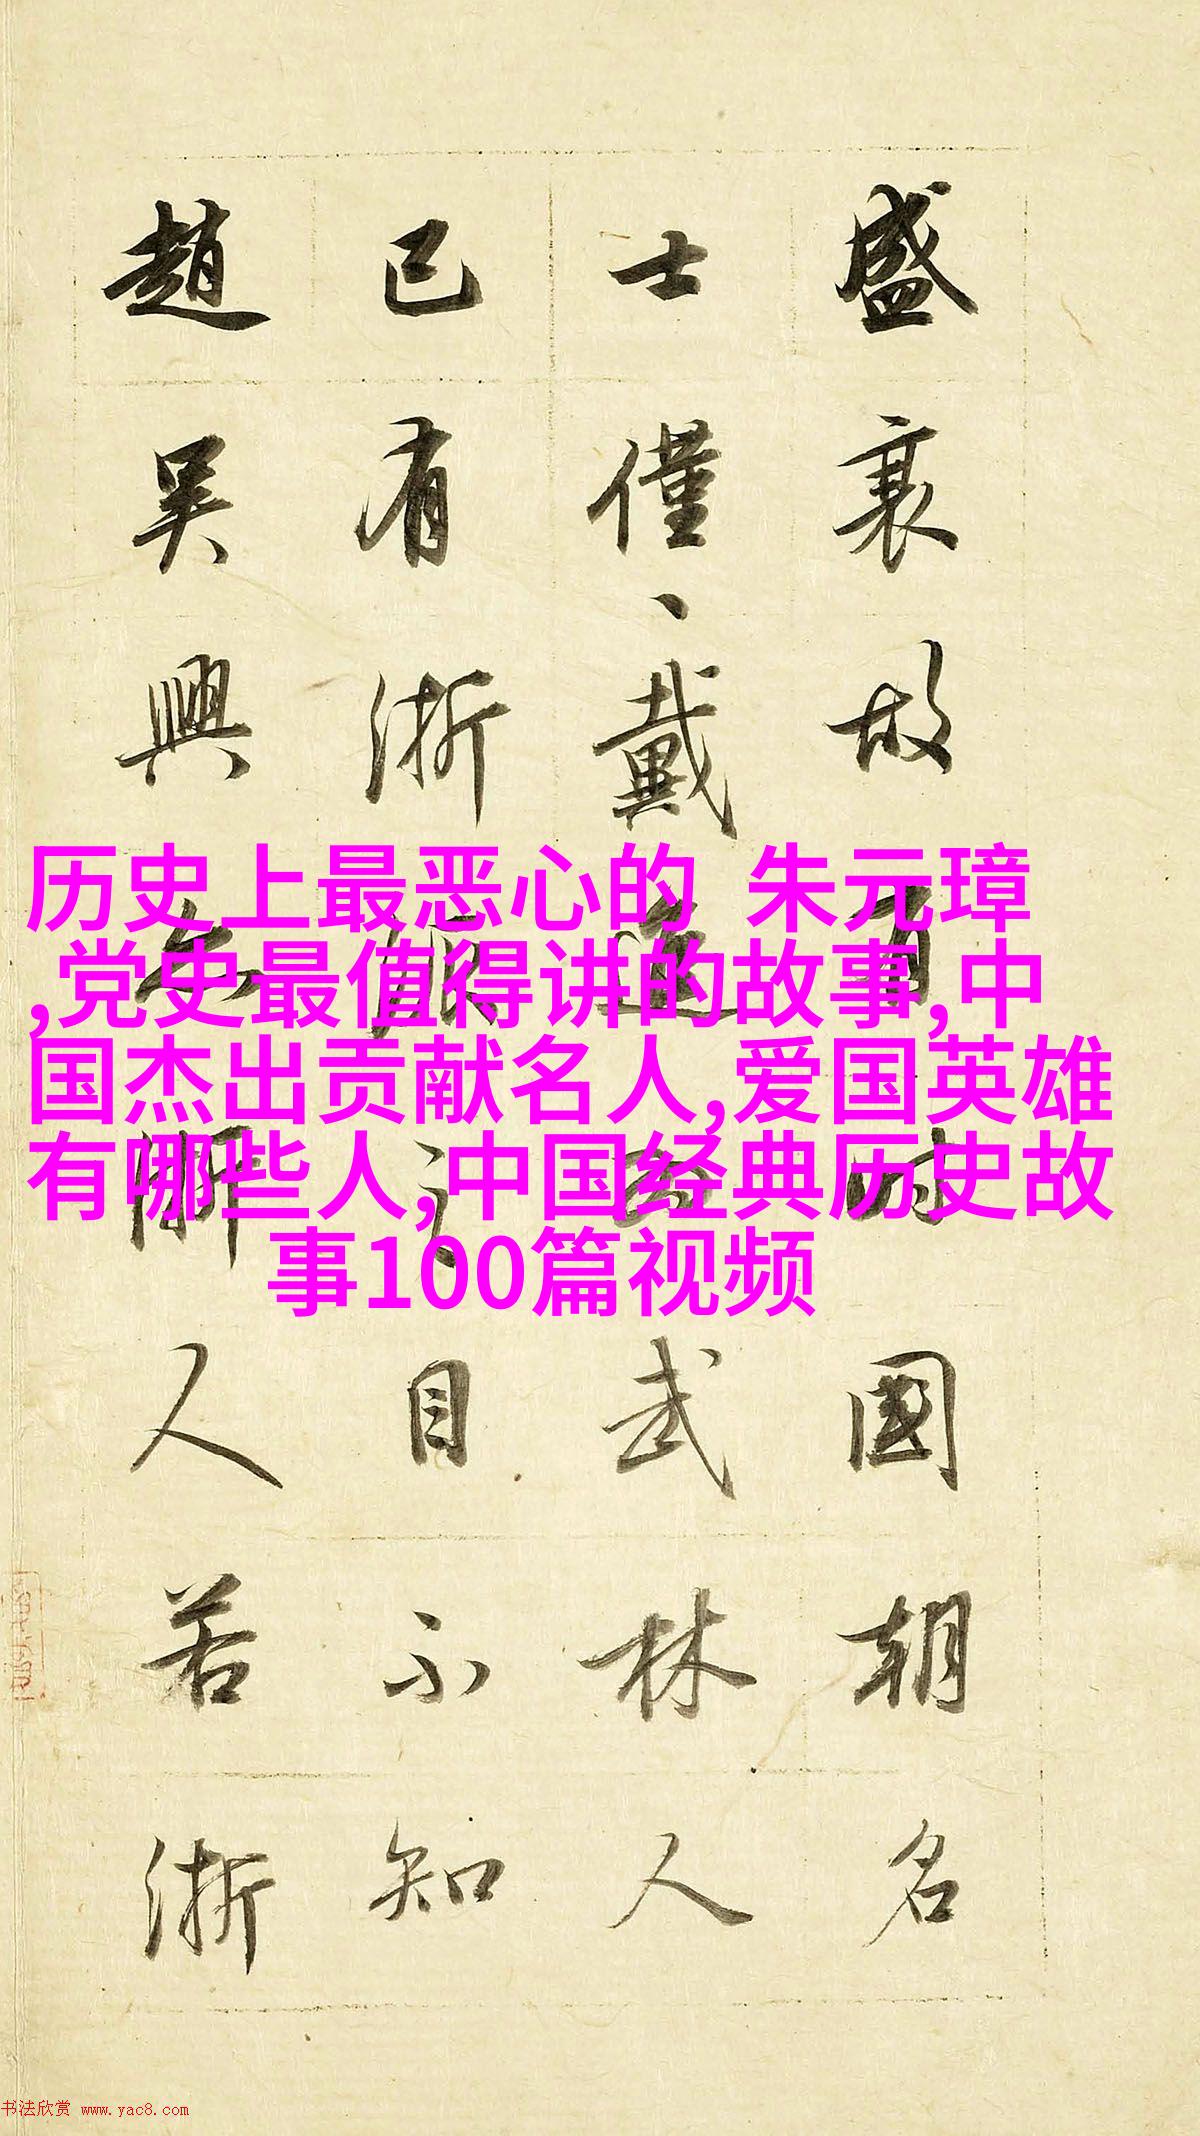 盛衰故有時國朝名
士僅、戴進為武林人
已有浙派之目不知
趙吳興亦浙人若浙
历史上最恶心的 朱元璋
,党史最值得讲的故事,中
国杰出贡献名人,爱国英雄
有哪些人,中国经典历史故
事100篇视频
书法欣赏 www.yac8.com